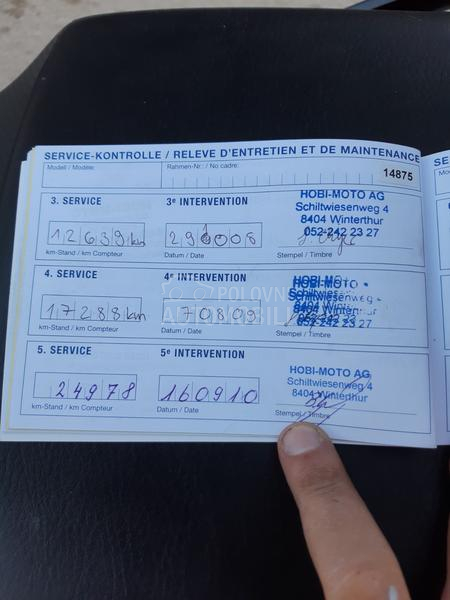 SERVICE-KONTROLLE / RELEVE D'ENTRETIEN ET DE MAINTENANCE
Modell / Modèle:
Rahmen-Nr.: / No cadre:
14875
3. SERVICE
3e INTERVENTION
HOBI-MOTO AG
Schiltwiesenweg 4
8404 Winterthur
052-242 23 27
12639 km
291008
km-Stand / km Compteur
Datum / Date
Stempel / Timbre
4. SERVICE
4e INTERVENTION
HOBI-MOTO
Schiltwiesenweg
8404 Winterthur
052-242 23 27
17288 km
170809
km-Stand / km Compteur
Datum / Date
5. SERVICE
5e INTERVENTION
HOBI-MOTO AG
Schiltwiesenweg 4
8404 Winterthur
24978
160910
km-Stand / km Compteur
Datum / Date
Stempel / Timbre